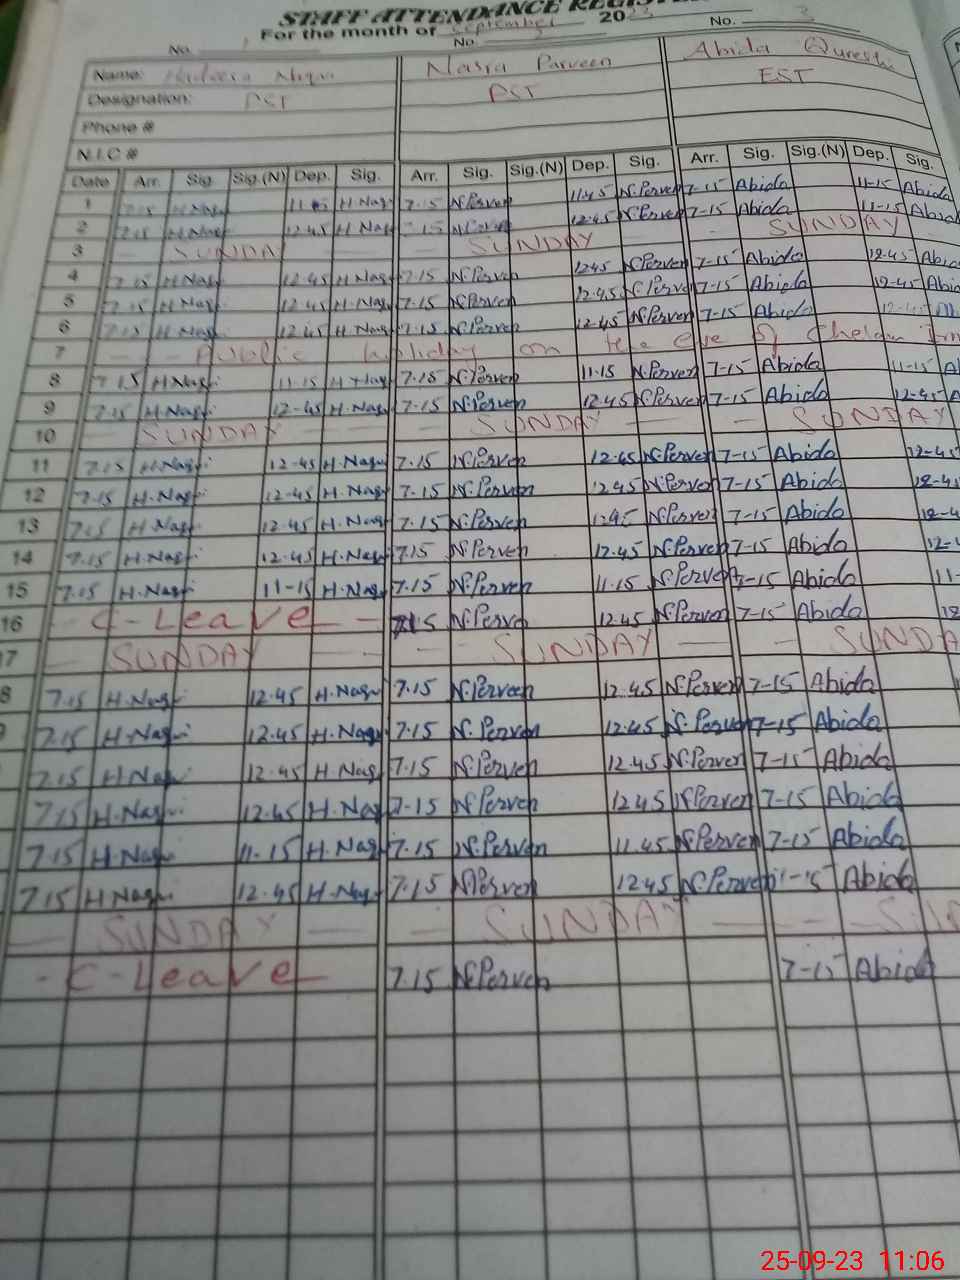 STAFF ATTENDANCE REGISTER
For the month of September 2023
No. 1 No. 2 No. 3
Name: Nasra Parveen Abida Qureshi
Designation: PST PST EST
Phone #
N.I.C #
Date Arr. Sig. Sig.(N) Dep. Sig. Arr. Sig. Sig.(N) Dep. Sig. Arr. Sig. Sig.(N) Dep. Sig.
1 7.15 H.Naqvi H.Naqvi 7.15 N.Perven 11.45 N.Perven 7-15 Abida 11-15 Abida
2 7.15 H.Naqvi 12.45 H.Naqvi 7.15 N.Perven 12.45 N.Perven 7-15 Abida 11-15 Abida
3 SUNDAY SUNDAY SUNDAY
4 7.15 H.Naqvi 12.45 H.Naqvi 7.15 N.Perven 12.45 N.Perven 7-15 Abida 12-45 Abida
5 7.15 H.Naqvi 12.45 H.Naqvi 7.15 N.Perven 12.45 N.Perven 7-15 Abida 12-45 Abida
6 7.15 H.Naqvi 12.45 H.Naqvi 7.15 N.Perven 12.45 N.Perven 7-15 Abida
7 Public holiday on the eve of
8 7.15 H.Naqvi 11.15 H.Naqvi 7.15 N.Perven 11.15 N.Perven 7-15 Abida 11-15
9 7.15 H.Naqvi 12-45 H.Naqvi 7.15 N.Perven 12.45 N.Perven 7-15 Abida 12-45
10 SUNDAY SUNDAY SUNDAY
11 7.15 H.Naqvi 12-45 H.Naqvi 7.15 N.Perven 12.45 N.Perven 7-15 Abida 12-45
12 7.15 H.Naqvi 12-45 H.Naqvi 7-15 N.Perven 12.45 N.Perven 7-15 Abida
13 7.15 H.Naqvi 12-45 H.Naqvi 7.15 N.Perven 12.45 N.Perven 7-15 Abida
14 7.15 H.Naqvi 12-45 H.Naqvi 7.15 N.Perven 12.45 N.Perven 7-15 Abida
15 7.15 H.Naqvi 11-15 H.Naqvi 7.15 N.Perven 11.15 N.Perven 7-15 Abida
16 C-Leave 7.15 N.Perven 12.45 N.Perven 7-15 Abida
7 SUNDAY SUNDAY SUNDA
8 7.15 H.Naqvi 12.45 H.Naqvi 7.15 N.Perveen 12.45 N.Perven 7-15 Abida
7.15 H.Naqvi 12.45 H.Naqvi 7.15 N.Perven 12.45 N.Perven 7-15 Abida
7.15 H.Naqvi 12.45 H.Naqvi 7.15 N.Perven 12.45 N.Perven 7-15 Abida
7.15 H.Naqvi 12.45 H.Naqvi 7-15 N.Perven 12.45 N.Perven 7-15 Abida
7.15 H.Naqvi 11.15 H.Naqvi 7.15 N.Perven 11.45 N.Perven 7-15 Abida
7.15 H.Naqvi 12.45 H.Naqvi 7.15 N.Perven 12.45 N.Perven Abida
SUNDAY SUNDAY SU
C-Leave 7.15 N.Perven 7-15 Abida
25-09-23 11:06